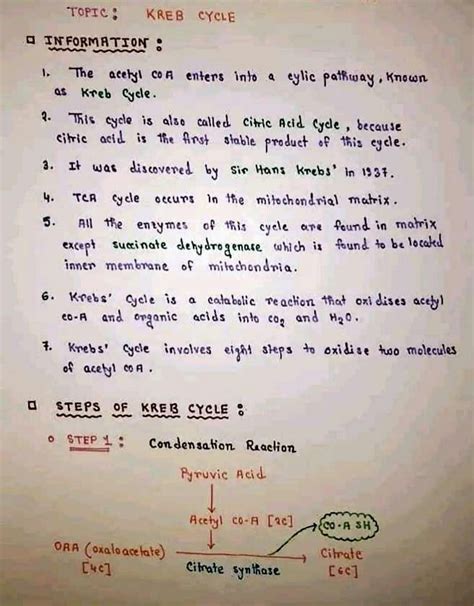 TOPIC : KREB CYCLE
INFORMATION :
1. The acetyl CoA enters into a cylic pathway, Known
as Kreb Cycle.
2. This cycle is also called Citric Acid Cycle, because
citric acid is the first stable product of this cycle.
3. It was discovered by Sir Hans Krebs' in 1937.
4. TCA Cycle occurs in the mitochondrial matrix.
5. All the enzymes of this cycle are found in matrix
except succinate dehydrogenase which is found to be located
inner membrane of mitochondria.
6. Krebs' Cycle is a catabolic reaction that oxidises acetyl
co-A and organic acids into CO2 and H2O.
7. Krebs' Cycle involves eight steps to oxidise two molecules
of acetyl CoA.
STEPS OF KREB CYCLE :
STEP 1 : Condensation Reaction
Pyruvic Acid
Acetyl CO-A [2C]
CO-A SH
OAA (oxaloacetate)
Citrate
[4C]
Citrate synthase
[6C]